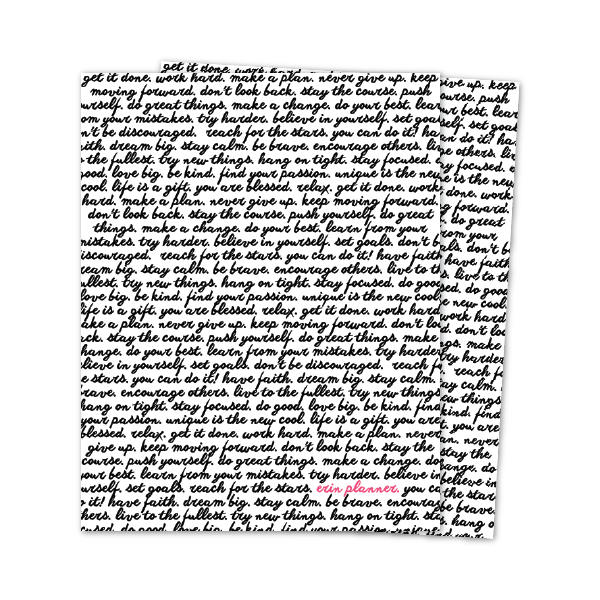 get it done. work hard. make a plan. never give up. keep
moving forward. don't look back. stay the course. push
urself. do great things. make a change. do your best. lear
om your mistakes. try harder. believe in yourself. set goals
n't be discouraged. reach for the stars. you can do it! ha
ith. dream big. stay calm. be brave. encourage others. liv
the fullest. try new things. hang on tight. stay focused.
ood. love big. be kind. find your passion. unique is the new
cool. life is a gift. you are blessed. relax. get it done. work
hard. make a plan. never give up. keep moving forward.
don't look back. stay the course. push yourself. do great
things. make a change. do your best. learn from your
mistakes. try harder. believe in yourself. set goals. don't b
iscouraged. reach for the stars. you can do it! have faith.
ream big. stay calm. be brave. encourage others. live to th
ullest. try new things. hang on tight. stay focused. do good
love big. be kind. find your passion. unique is the new cool.
life is a gift. you are blessed. relax. get it done. work hard
ake a plan. never give up. keep moving forward. don't lo
ack. stay the course. push yourself. do great things. make
hange. do your best. learn from your mistakes. try harder
lieve in yourself. set goals. don't be discouraged. reach fo
e stars. you can do it! have faith. dream big. stay calm.
rave. encourage others. live to the fullest. try new things
hang on tight. stay focused. do good. love big. be kind. find
your passion. unique is the new cool. life is a gift. you are
blessed. relax. get it done. work hard. make a plan. never
give up. keep moving forward. don't look back. stay the
course. push yourself. do great things. make a change. do
your best. learn from your mistakes. try harder. believe in
urself. set goals. reach for the stars. erin planner. you ca
o it! have faith. dream big. stay calm. be brave. encourag
hers. live to the fullest. try new things. hang on tight. stay
cused. do good. love big. be kind. find your passion. unique